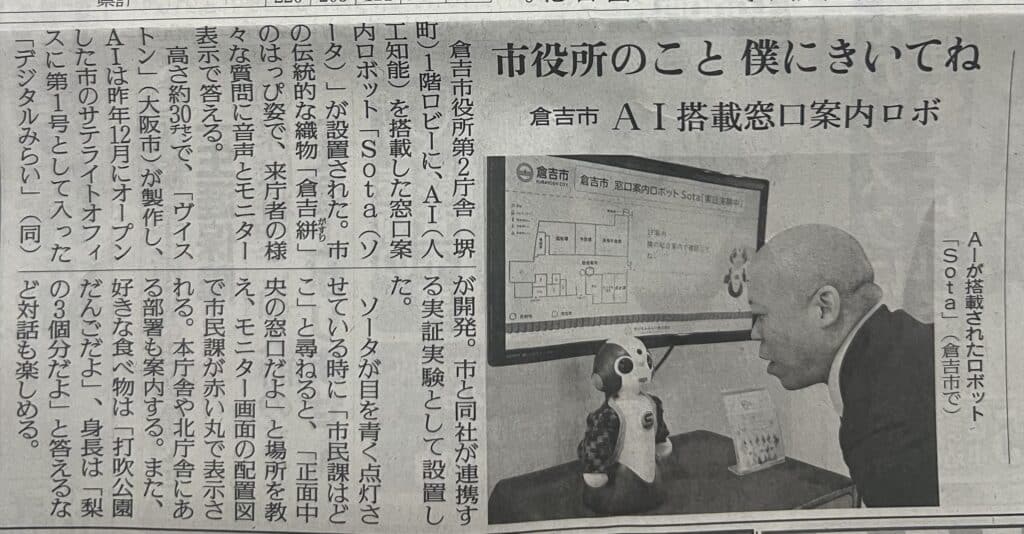 市役所のこと 僕にきいてね
倉吉市 AI搭載窓口案内ロボ
倉吉市役所第2庁舎(堺
町)1階ロビーに、AI(人
工知能)を搭載した窓口案
内ロボット「Sota(ソ
ータ)」が設置された。市
の伝統的な織物「倉吉絣」
がすり
のはっぴ姿で、来庁者の様
々な質問に音声とモニター
表示で答える。
高さ約30㌢で、「ヴイス
トン」(大阪市)が製作し、
AIは昨年12月にオープン
した市のサテライトオフィ
スに第1号として入った
「デジタルみらい」(同)
が開発。市と同社が連携す
る実証実験として設置し
た。
ソータが目を青く点灯さ
せている時に「市民課はど
こ」と尋ねると、「正面中
央の窓口だよ」と場所を教
え、モニター画面の配置図
で市民課が赤い丸で表示さ
れる。本庁舎や北庁舎にあ
る部署も案内する。また、
好きな食べ物は「打吹公園
だんごだよ」、身長は「梨
の3個分だよ」と答えるな
ど対話も楽しめる。
倉吉市
KURAYOSHI CITY
倉吉市 窓口案内ロボット Sota「実証実験中」
AIが搭載されたロボット
「Sota」(倉吉市で)